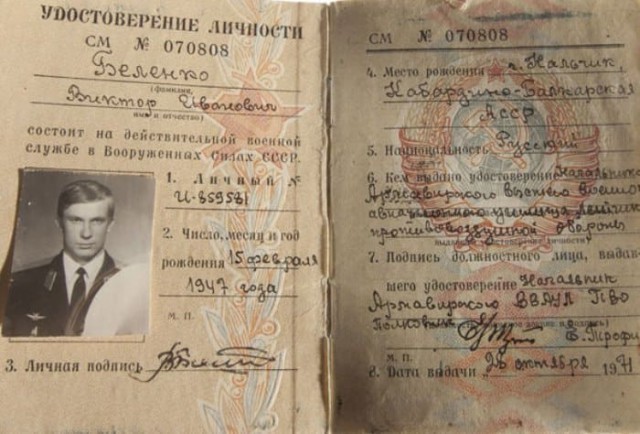 УДОСТОВЕРЕНИЕ ЛИЧНОСТИ
СМ № 070808
Беленко
(фамилия,
Виктор Иванович
имя и отчество)
состоит на действительной военной
службе в Вооруженных Силах СССР.
1. Личный №
И-859581
2. Число, месяц и год
рождения 15 февраля
1947 года
М. П.
3. Личная подпись
СМ № 070808
4. Место рождения г. Нальчик,
Кабардино-Балкарская
АССР
5. Национальность Русский
6. Кем выдано удостоверение Начальником
Армавирского высшего военно
авиационного училища летчиков
противовоздушной обороны
7. Подпись должностного лица, выдав-
шего удостоверение Начальник
Армавирского ВВАУЛ ПВО
Полковник
М. П.
8. Дата выдачи 26 октября 1971